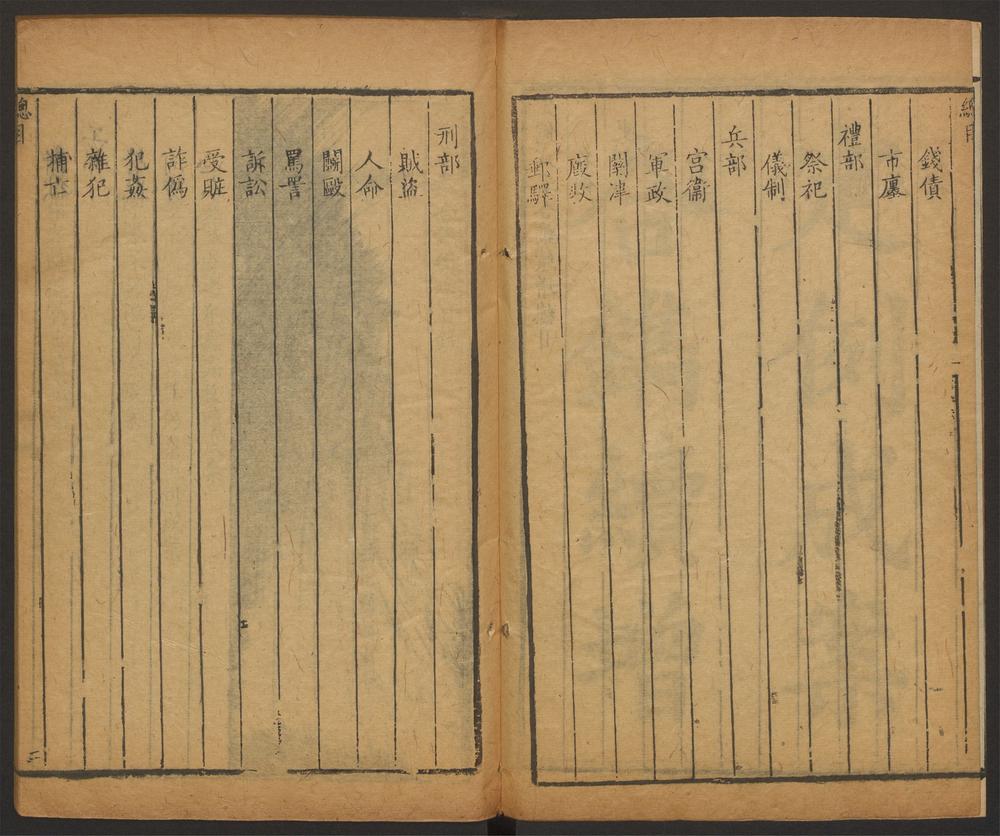 總目
錢債
市廛
禮部
祭祀
儀制
兵部
宮衛
軍政
關津
廐牧
郵驛
刑部
賊盜
人命
鬬毆
罵詈
訴訟
受賍
詐偽
犯姦
雜犯
捕亡
總目
二